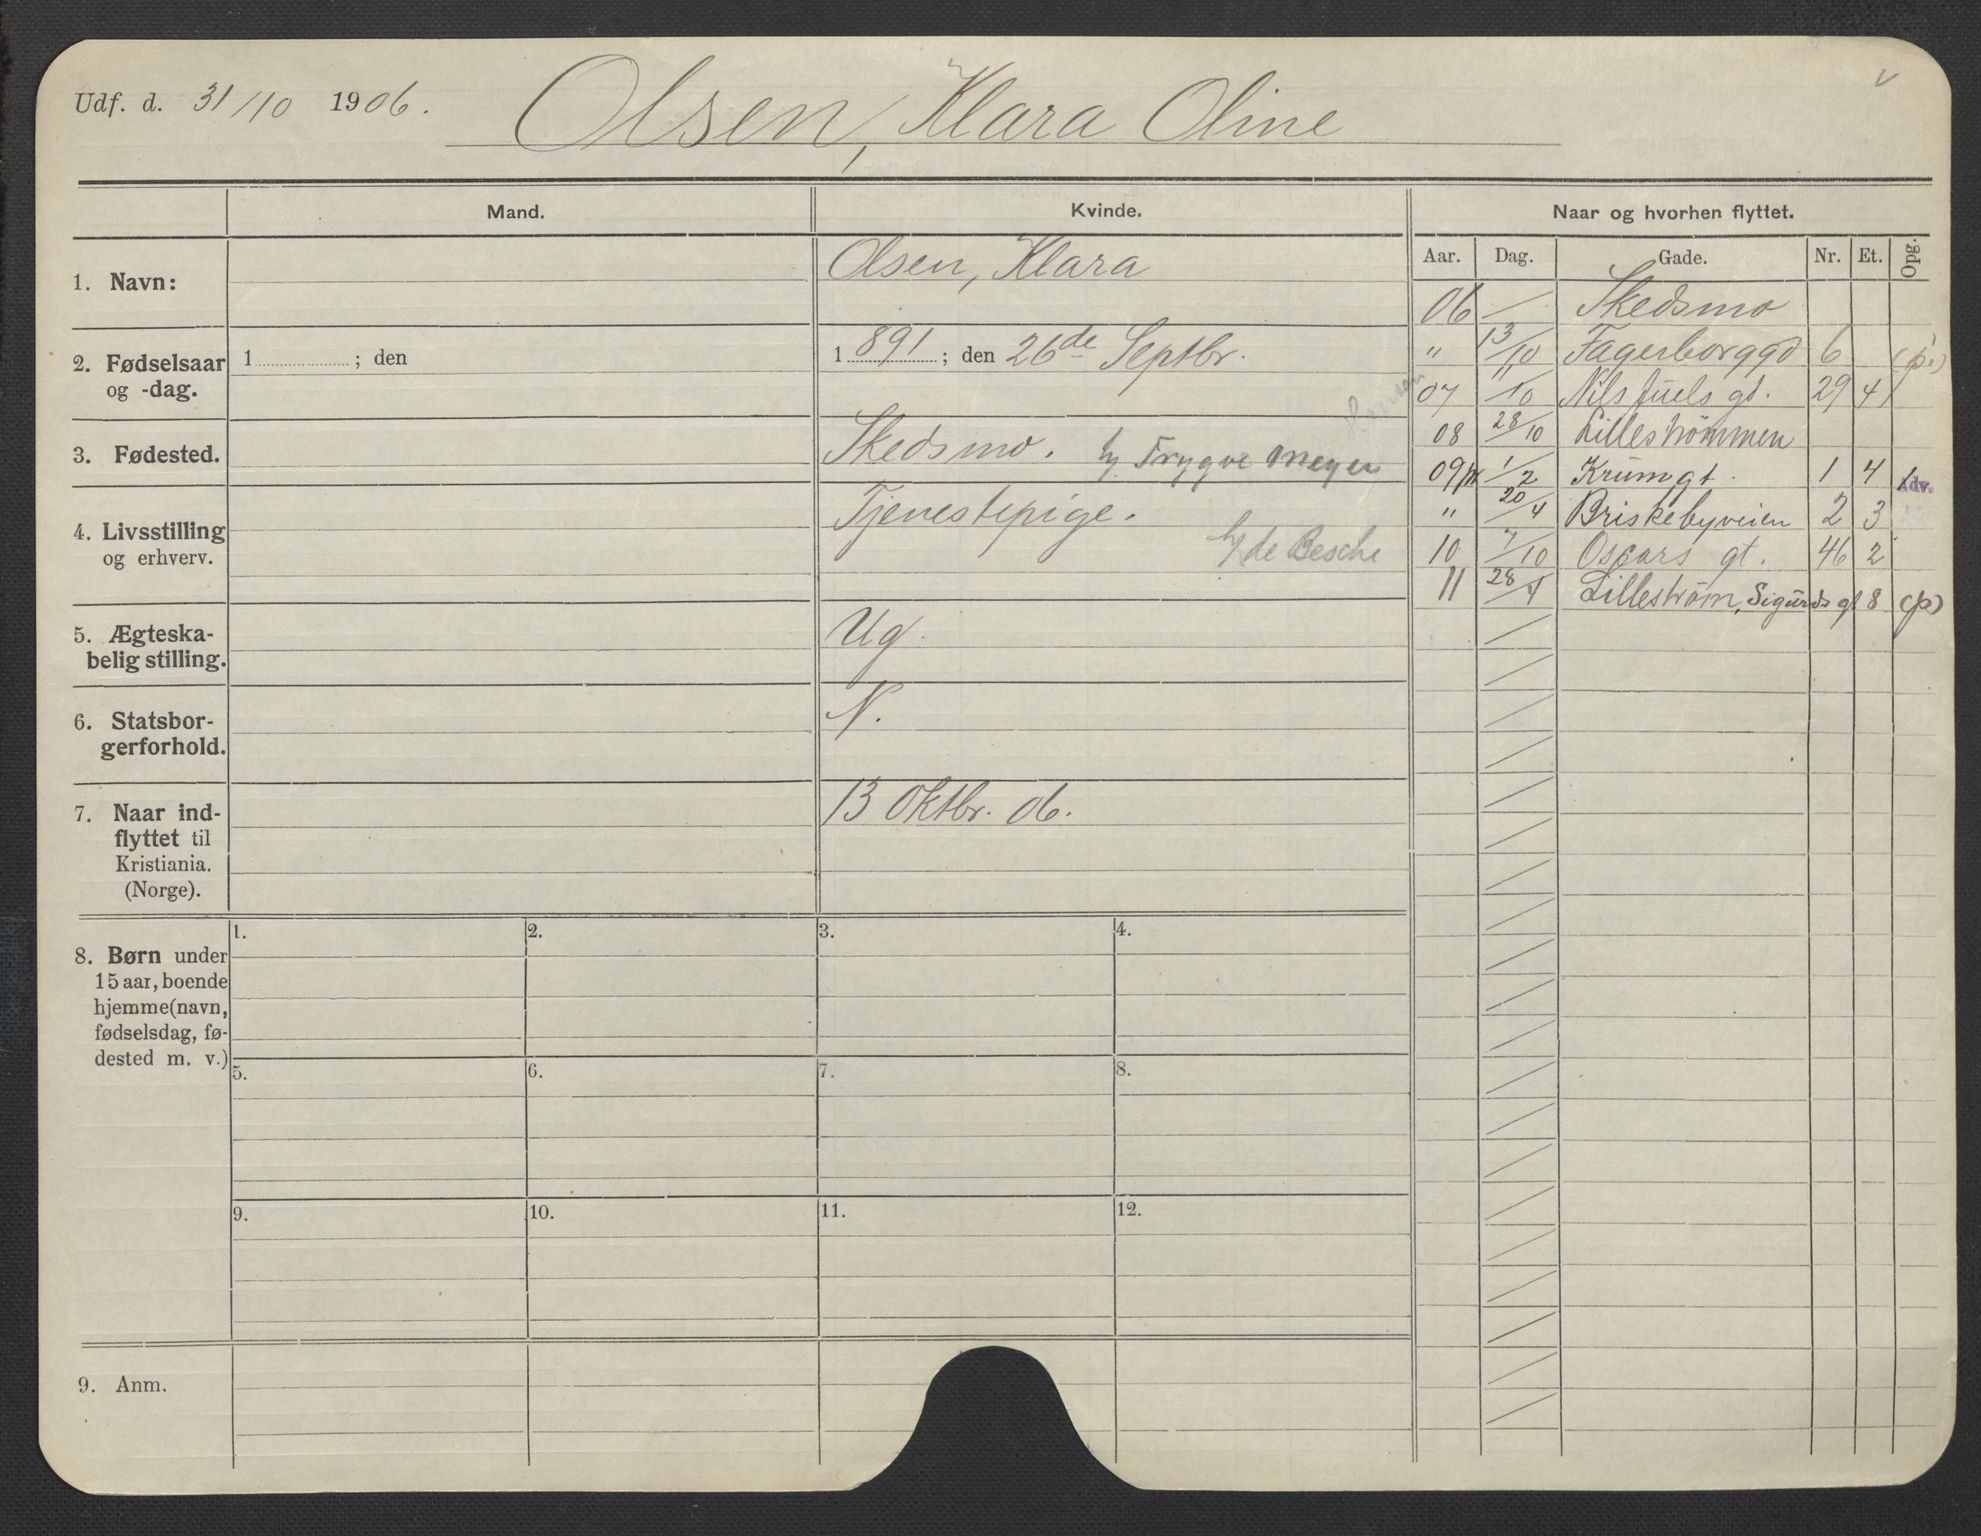 Udf. d. 31/10 1906.
Olsen, Klara Oline
Mand.
Kvinde.
Naar og hvorhen flyttet.
Aar. Dag. Gade. Nr. Et. Opg.
1. Navn:
Olsen, Klara
2. Fødselsaar
og -dag.
1 ; den
1891 ; den 26de Septbr.
3. Fødested.
Skedsmo. hj Trygve Meyer
4. Livsstilling
og erhverv.
Tjenestepige.
hj de Besche
5. Ægteska-
belig stilling.
Ug.
6. Statsbor-
gerforhold.
N.
7. Naar ind-
flyttet til
Kristiania.
(Norge).
13 Oktbr. 06.
06 / Skedsmo
" 13/10 Fagerborggd 6 (p.)
07 11/10 Nils Juels gd. 29 4
08 28/10 Lillestrømmen
09 1/2 Krumgt. 1 4 Adv.
" 20/4 Briskebyveien 2 3
10 7/10 Oscars gt. 46 2
11 28/4 Lillestrøm, Sigurds gt 8 (p)
8. Børn under
15 aar, boende
hjemme (navn,
fødselsdag, fø-
dested m. v.)
1. 2. 3. 4.
5. 6. 7. 8.
9. 10. 11. 12.
9. Anm.